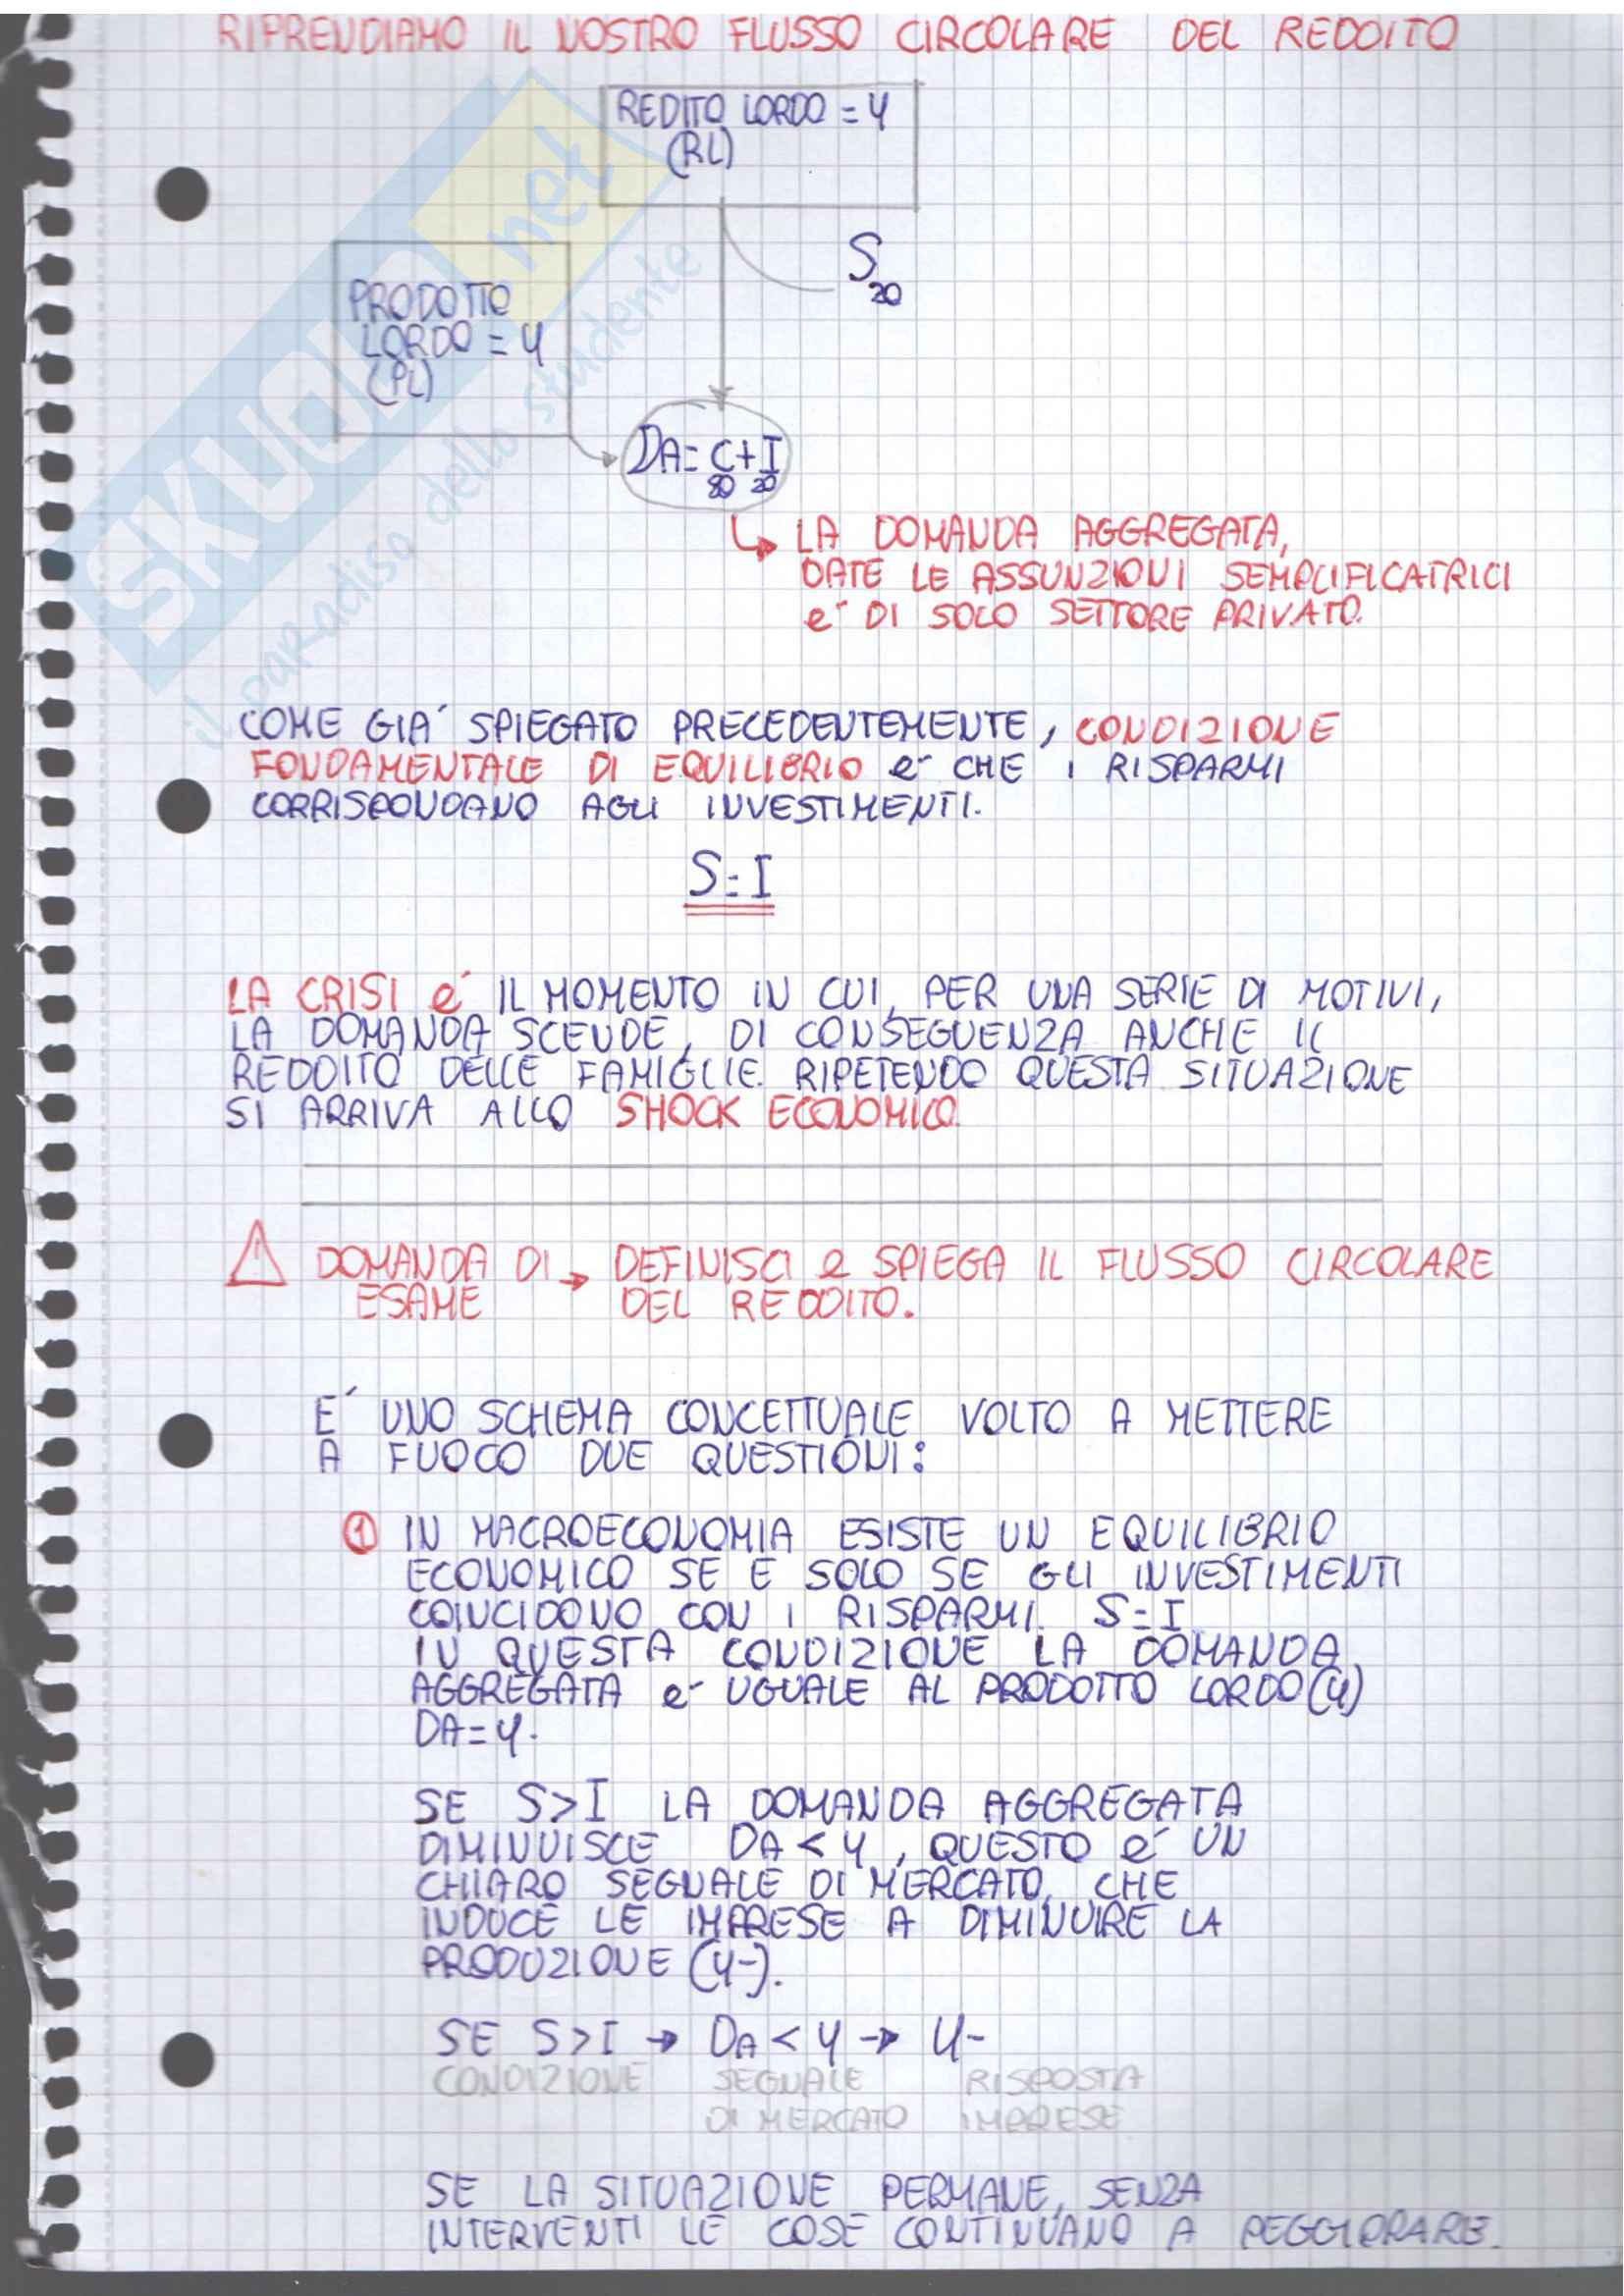 RIPRENDIAMO IL NOSTRO FLUSSO CIRCOLARE DEL REDDITO
REDITO LORDO = Y
(RL)
S
20
PRODOTTO
LORDO = Y
(PL)
DA = C + I
80 20
↳ LA DOMANDA AGGREGATA,
DATE LE ASSUNZIONI SEMPLIFICATRICI
e' DI SOLO SETTORE PRIVATO.
COME GIA' SPIEGATO PRECEDENTEMENTE, CONDIZIONE
FONDAMENTALE DI EQUILIBRIO e' CHE I RISPARMI
CORRISPONDANO AGLI INVESTIMENTI.
S = I
LA CRISI e' IL MOMENTO IN CUI, PER UNA SERIE DI MOTIVI,
LA DOMANDA SCENDE, DI CONSEGUENZA ANCHE IL
REDDITO DELLE FAMIGLIE. RIPETENDO QUESTA SITUAZIONE
SI ARRIVA ALLO SHOCK ECONOMICO.
! DOMANDA DI → DEFINISCI e SPIEGA IL FLUSSO CIRCOLARE
ESAME DEL REDDITO.
E' UNO SCHEMA CONCETTUALE VOLTO A METTERE
A FUOCO DUE QUESTIONI:
① IN MACROECONOMIA ESISTE UN EQUILIBRIO
ECONOMICO SE E SOLO SE GLI INVESTIMENTI
COINCIDONO CON I RISPARMI. S = I
IN QUESTA CONDIZIONE LA DOMANDA
AGGREGATA e' UGUALE AL PRODOTTO LORDO (Y)
DA = Y.
SE S > I LA DOMANDA AGGREGATA
DIMINUISCE DA < Y, QUESTO e' UN
CHIARO SEGNALE DI MERCATO, CHE
INDUCE LE IMPRESE A DIMINUIRE LA
PRODUZIONE (Y-).
SE S > I → DA < Y → Y-
CONDIZIONE SEGNALE RISPOSTA
DI MERCATO IMPRESE
SE LA SITUAZIONE PERMANE, SENZA
INTERVENTI LE COSE CONTINUANO A PEGGIORARE.
SKUOLA.net
il paradiso dello studente